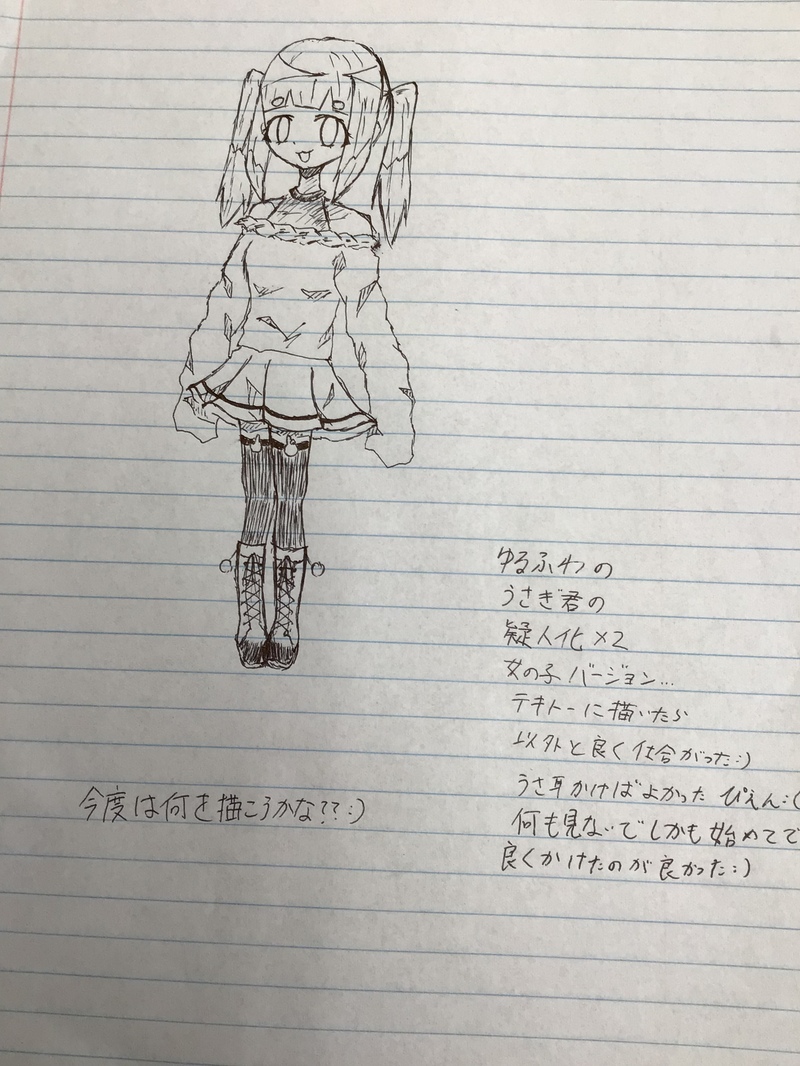 ゆるふわの
うさぎ君の
疑人化×2
女の子バージョン...
テキトーに描いたら
以外と良く仕合がった:)
うさ耳かけばよかった ぴえん:(
何も見ないでしかも始めてで
良くかけたのが良かった:)
今度は何を描ころかな??:)